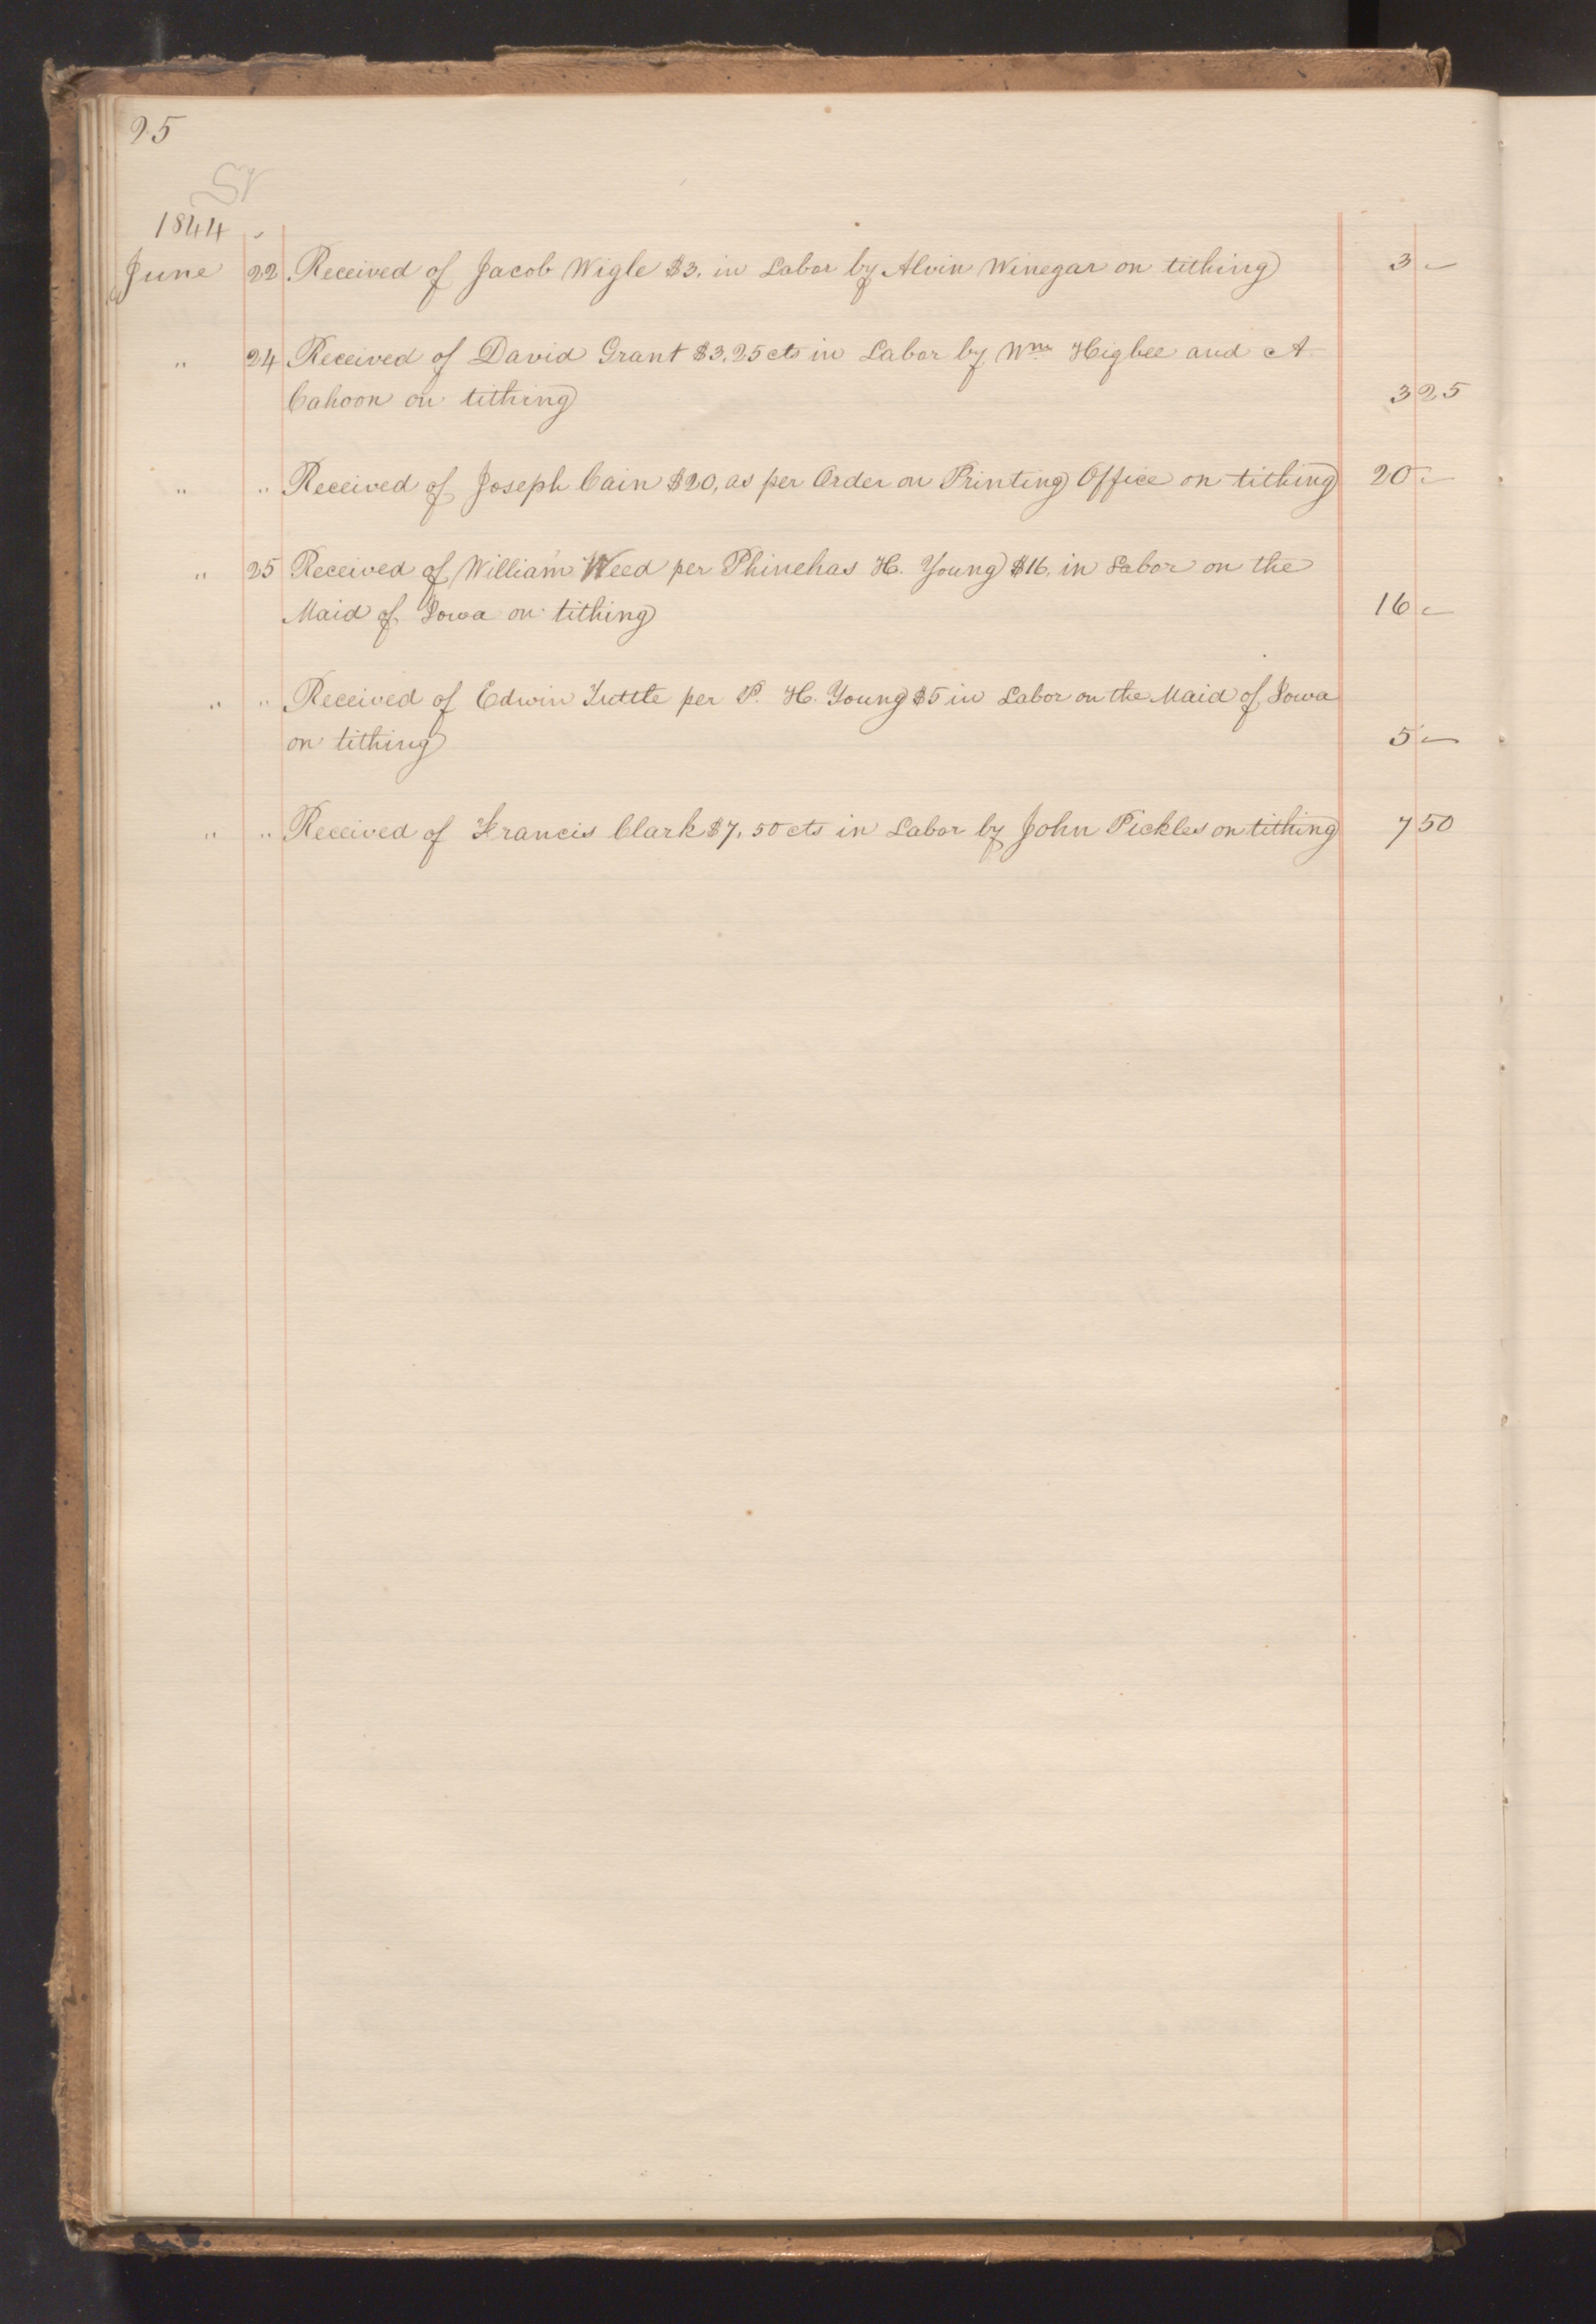 25
1844
June 22 Received of Jacob Wigle $3. in Labor by Alvin Winegar on tithing 3 —
" 24 Received of David Grant $3,25 cts in Labor by Wm Higbee and A
Cahoon on tithing 3 25
" " Received of Joseph Cain $20, as per Order on Printing Office on tithing 20 —
" 25 Received of William Weed per Phinehas H. Young $16. in Labor on the
Maid of Iowa on tithing 16 —
" " Received of Edwin Tuttle per P. H. Young $5 in Labor on the Maid of Iowa
on tithing 5 —
" " Received of Francis Clark $7,50 cts in Labor by John Pickles on tithing 7 50